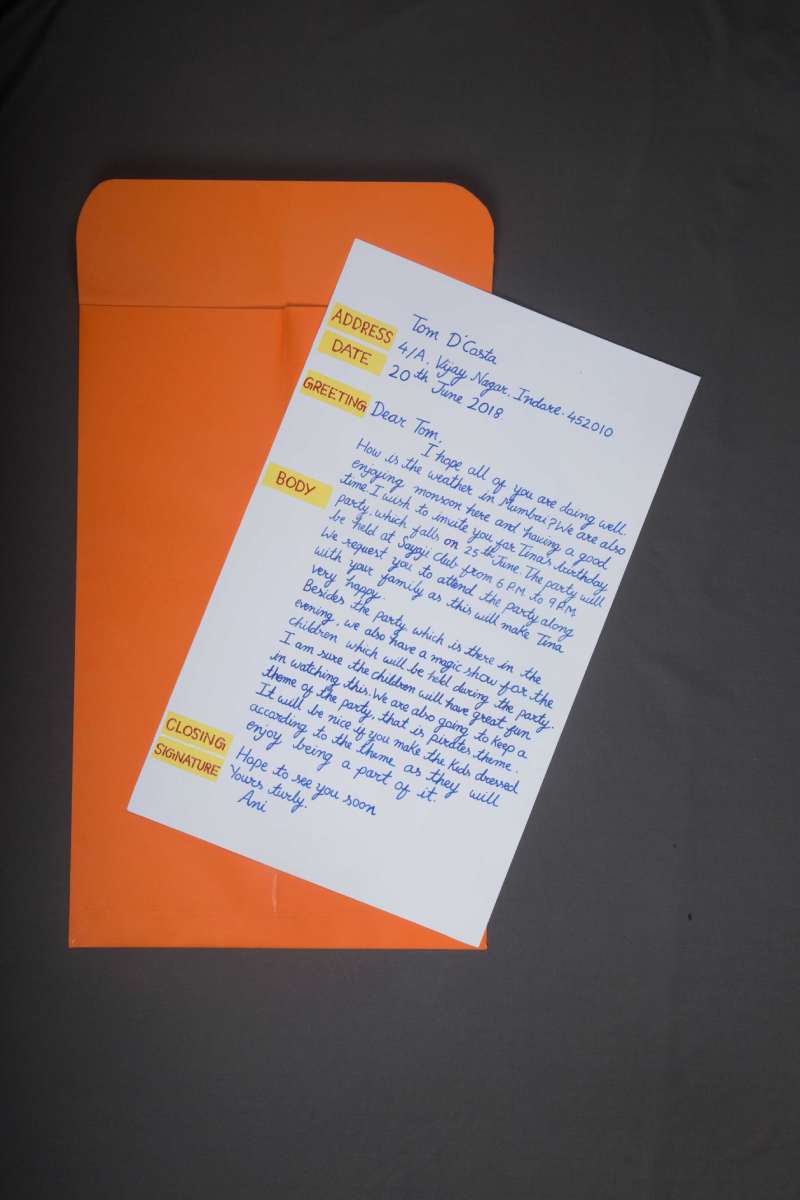 ADDRESS
Tom D'Casta
4/A, Vijay Nagar, Indore. 452010
DATE
20 th June 2018
GREETING
Dear Tom,
BODY
I hope all of you are doing well.
How is the weather in Mumbai? We are also
enjoying monsoon here and having a good
time. I wish to invite you for Tina's birthday
party, which falls on 25 th June. The party will
be held at Sayaji Club from 6 P.M. to 9 P.M.
We request you to attend the party along
with your family as this will make Tina
very happy.
Besides the party, which is there in the
evening, we also have a magic show for the
children which will be held during the party.
I am sure the children will have great fun
in watching this. We are also going to keep a
theme of the party, that is pirates theme.
It will be nice if you make the kids dressed
according to the theme as they will
enjoy being a part of it.
CLOSING
Hope to see you soon
SIGNATURE
Yours turly.
Ani